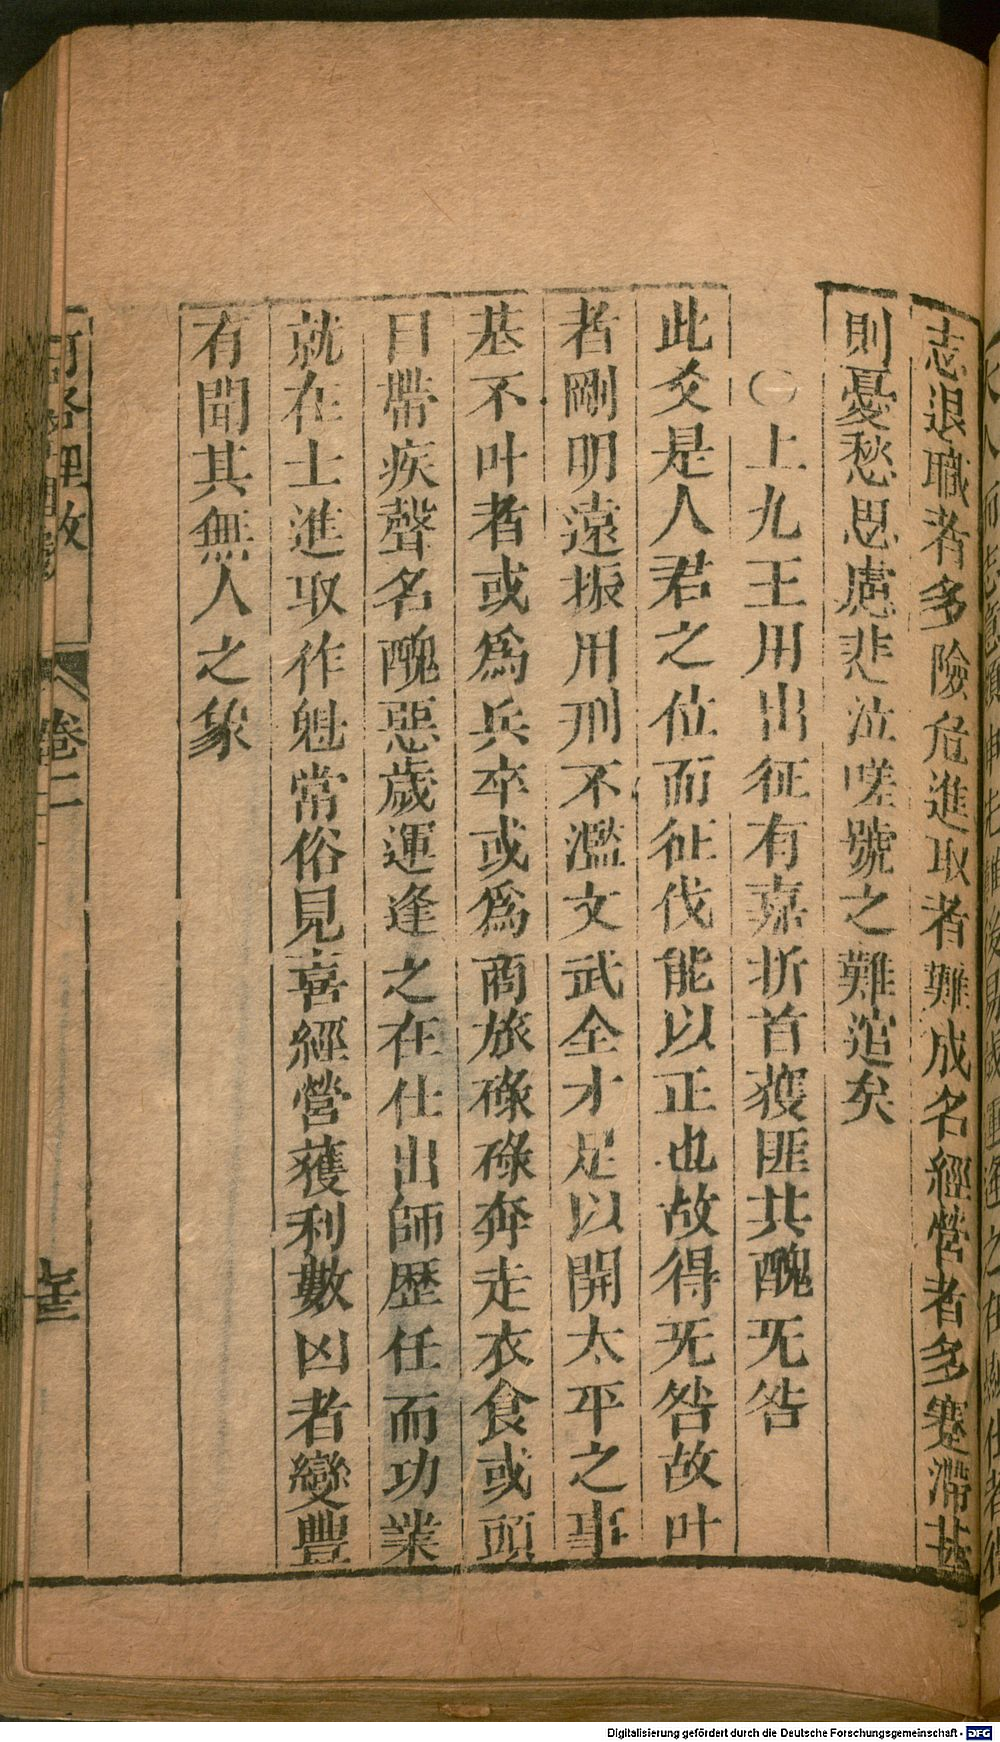 志退職者多險危進取者難成名經營者多蹇滯甚
則憂愁思慮悲泣嗟號之難逭矣
〇上九王用出征有嘉折首獲匪其醜无咎
此爻是人君之位而征伐能以正也故得无咎故叶
者剛明遠振用刑不濫文武全才足以開太平之事
基不叶者或爲兵卒或爲商旅碌碌奔走衣食或頭
目帶疾聲名醜惡歲運逢之在仕出師歷任而功業
就在士進取作魁常俗見喜經營獲利數凶者變豐
有聞其無人之象
河洛理數
卷二
Digitalisierung gefördert durch die Deutsche Forschungsgemeinschaft - DFG